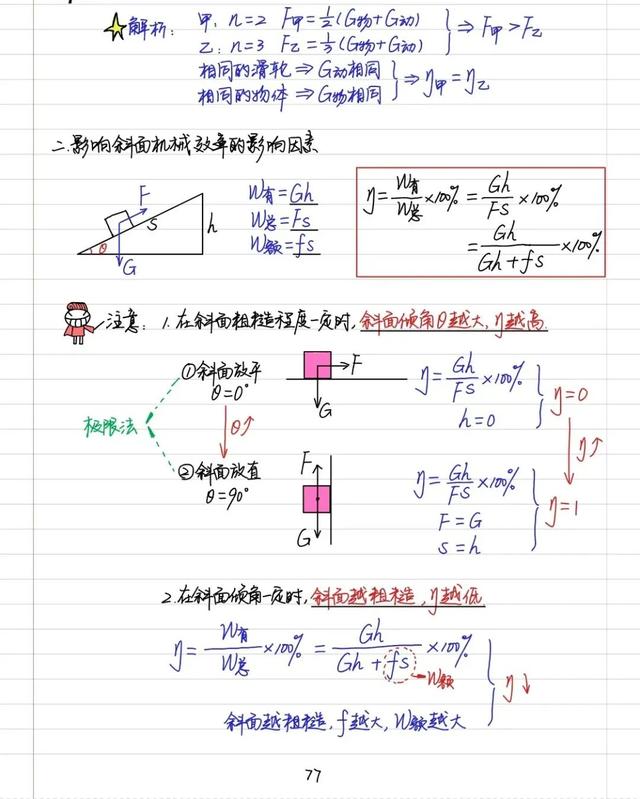 解析: 甲: n=2 F甲=½(G物+G动) ⇒ F甲>F乙
乙: n=3 F乙=⅓(G物+G动)
相同的滑轮⇒G动相同 ⇒ η甲=η乙
相同的物体⇒G物相同
二.影响斜面机械效率的影响因素
F
s
h
θ
G
W有=Gh
W总=Fs
W额=fs
η=W有/W总×100%=Gh/FS×100%
=Gh/(Gh+fs)×100%
注意: 1.在斜面粗糙程度一定时,斜面倾角θ越大,η越高.
极限法
①斜面放平
θ=0°
θ↑
F
G
η=Gh/FS×100%
h=0
η=0
η↑
②斜面放直
θ=90°
F
G
η=Gh/FS×100%
F=G
s=h
η=1
2.在斜面倾角一定时,斜面越粗糙,η越低
η=W有/W总×100%=Gh/(Gh+fs)×100%
W额
η↓
斜面越粗糙,f越大,W额越大
77